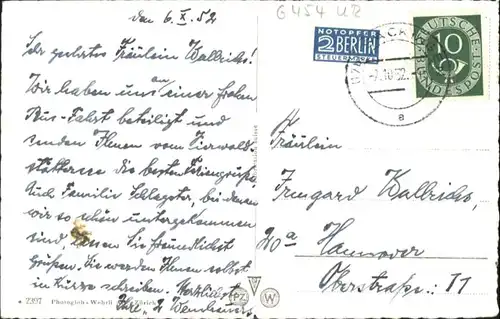 den 6.X.52
G454 UR
Sehr geehrtes Fräulein Kallrichs!
Wir haben uns an einer frohen
Bus-Fahrt beteiligt und
senden Ihnen vom Vierwald-
stättersee die besten Feriengrüße.
Auch Familie Schlegster, bei denen
wir so schön untergekommen
sind, lassen Sie freundlichst
grüßen. Sie werden Ihnen selbst
in Kürze schreiben. Herzlichst
Ihre
NOTOPFER
2 BERLIN
STEUERMARKE
DEUTSCHE
BUNDESPOST
10
-7.10.52.
a
Fräulein
Irmgard Kallrichs,
20a Hannover
Oberstraße: 11
2397 Photoglob-Wehrli Zürich
PZ
W